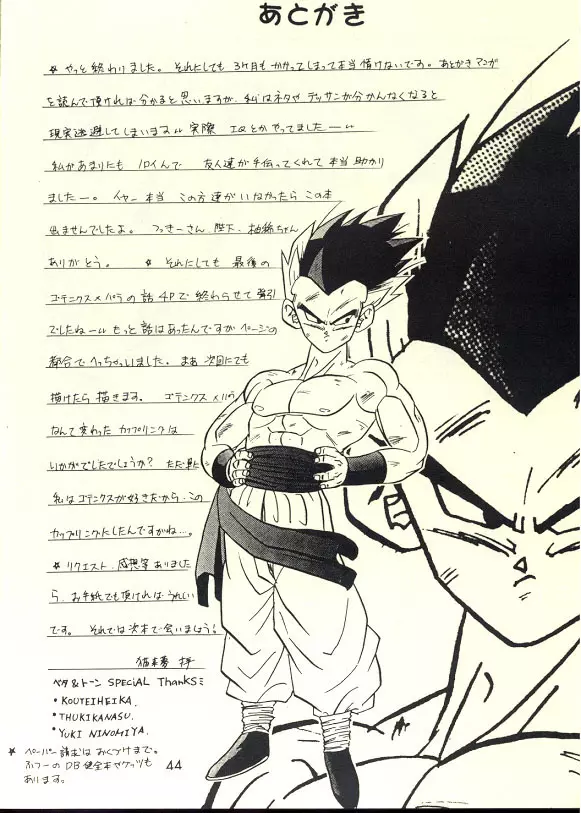 あとがき
☆ やっと終わりました。それにしても3ヶ月もかかってしまって本当情けないです。あとがきマンガ
を読んで頂ければ分かると思いますが、私はネタやデッサンが分かんなくなると
現実逃避してしまいます 実際 IQとかやってましたー
私があまりにも ノロイんで 友人達が手伝ってくれて本当助かり
ましたー。イヤー本当 この方達がいなかったら この本
出ませんでしたよ。つっきーさん 陛下、柚絵ちゃん
ありがとう。 ☆ それにしても 最後の
ゴテニクス×パラの話 4Pで終わらせて 強引
でしたねー もっと話はあったんですが ページの
都合でへっちゃいました。まあ 次回にでも
描けたら 描きます。 ゴテニクス×パラ
なんて変わった カップリングは
いかがでしたでしょうか? ただ単に
私はゴテニクスが好きだから、この
カップリングにしたんですがね…。
☆ リクエスト、感想等ありました
ら、お手紙でも頂ければ うれしい
です。 それでは次本で会いましょう!
ベタ&トーン SPECIAL THANKS
・KOUTEIHEIKA.
・THUKIKANASU.
・YUKI NINOMIYA.
☆ ペーパー請求は おくづけまで。
ふつーの DB健全本やグッツも
あります。
44